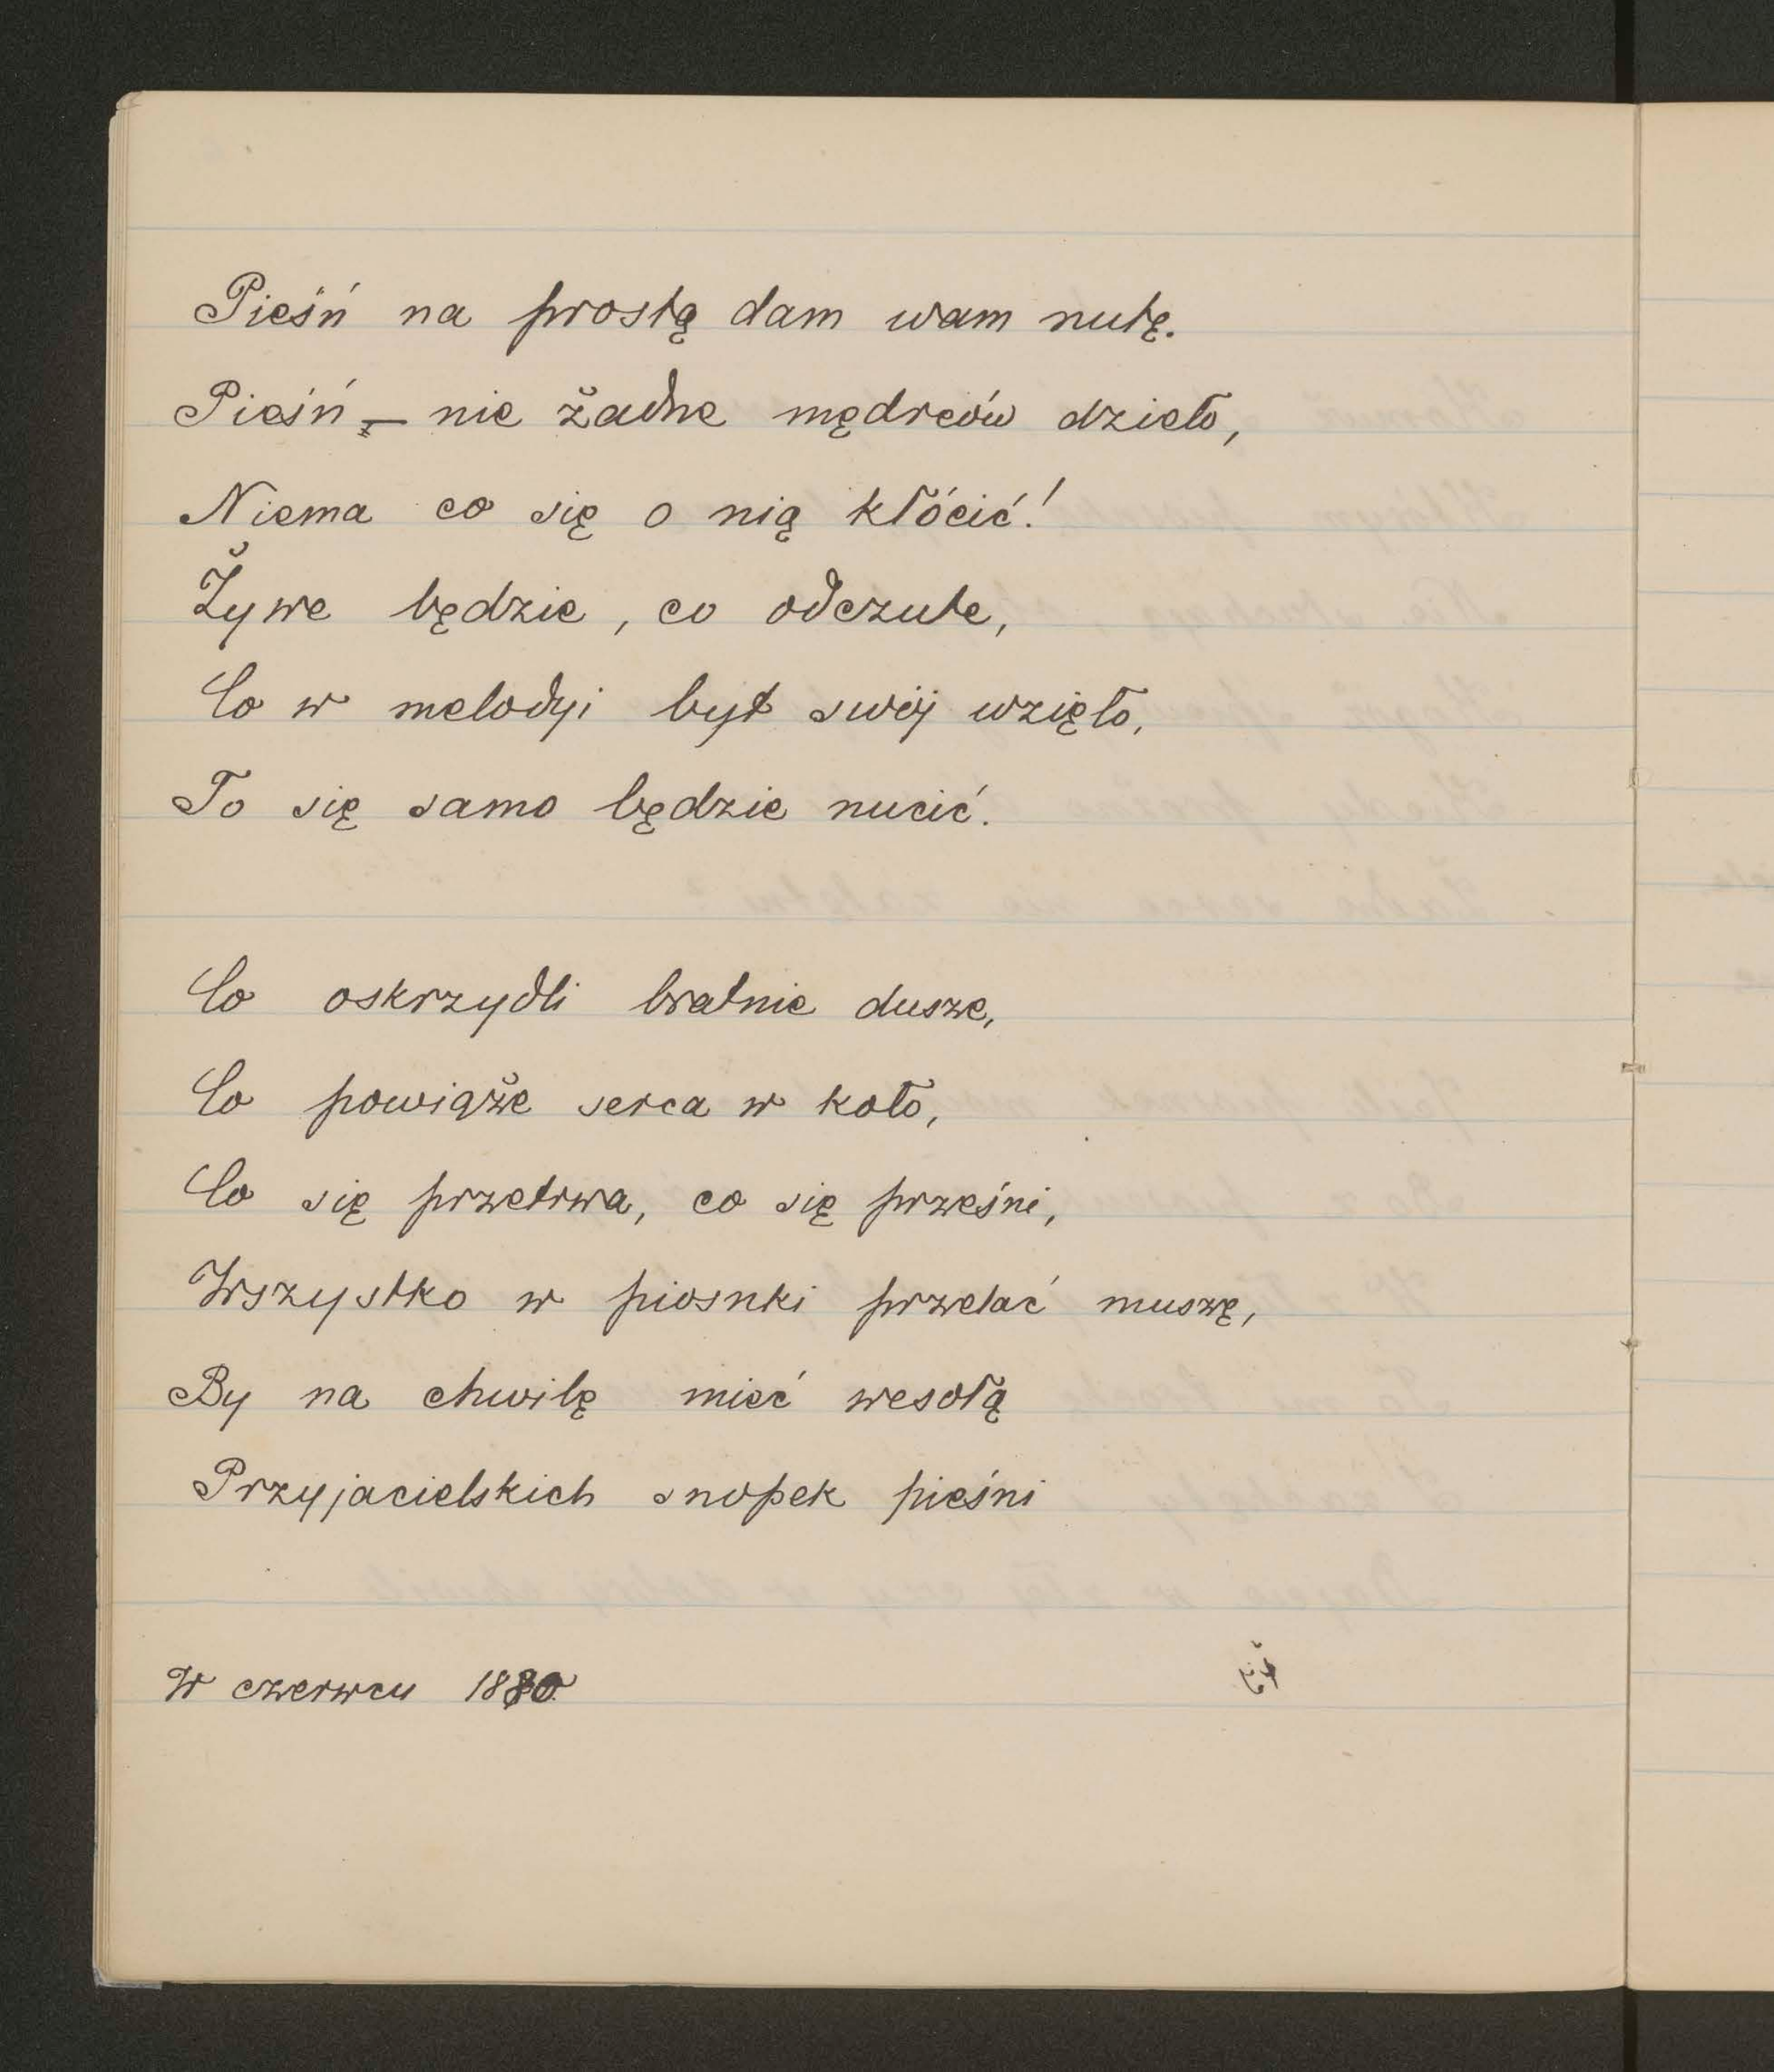 Pieśń na prostą dam wam nutę.
Pieśń – nie żadne mędrców dzieło,
Niema co się o nią kłócić!
Żywe będzie, co odczute,
Co w melodyi byt swój wzięło,
To się samo będzie nucić.
Co oskrzydli bratnie dusze,
Co powiąże serca w koło,
Co się przetrwa, co się prześni,
Wszystko w piosnki przelać muszę,
By na chwilę mieć wesołą
Przyjacielskich snopek pieśni
W czerwcu 1880